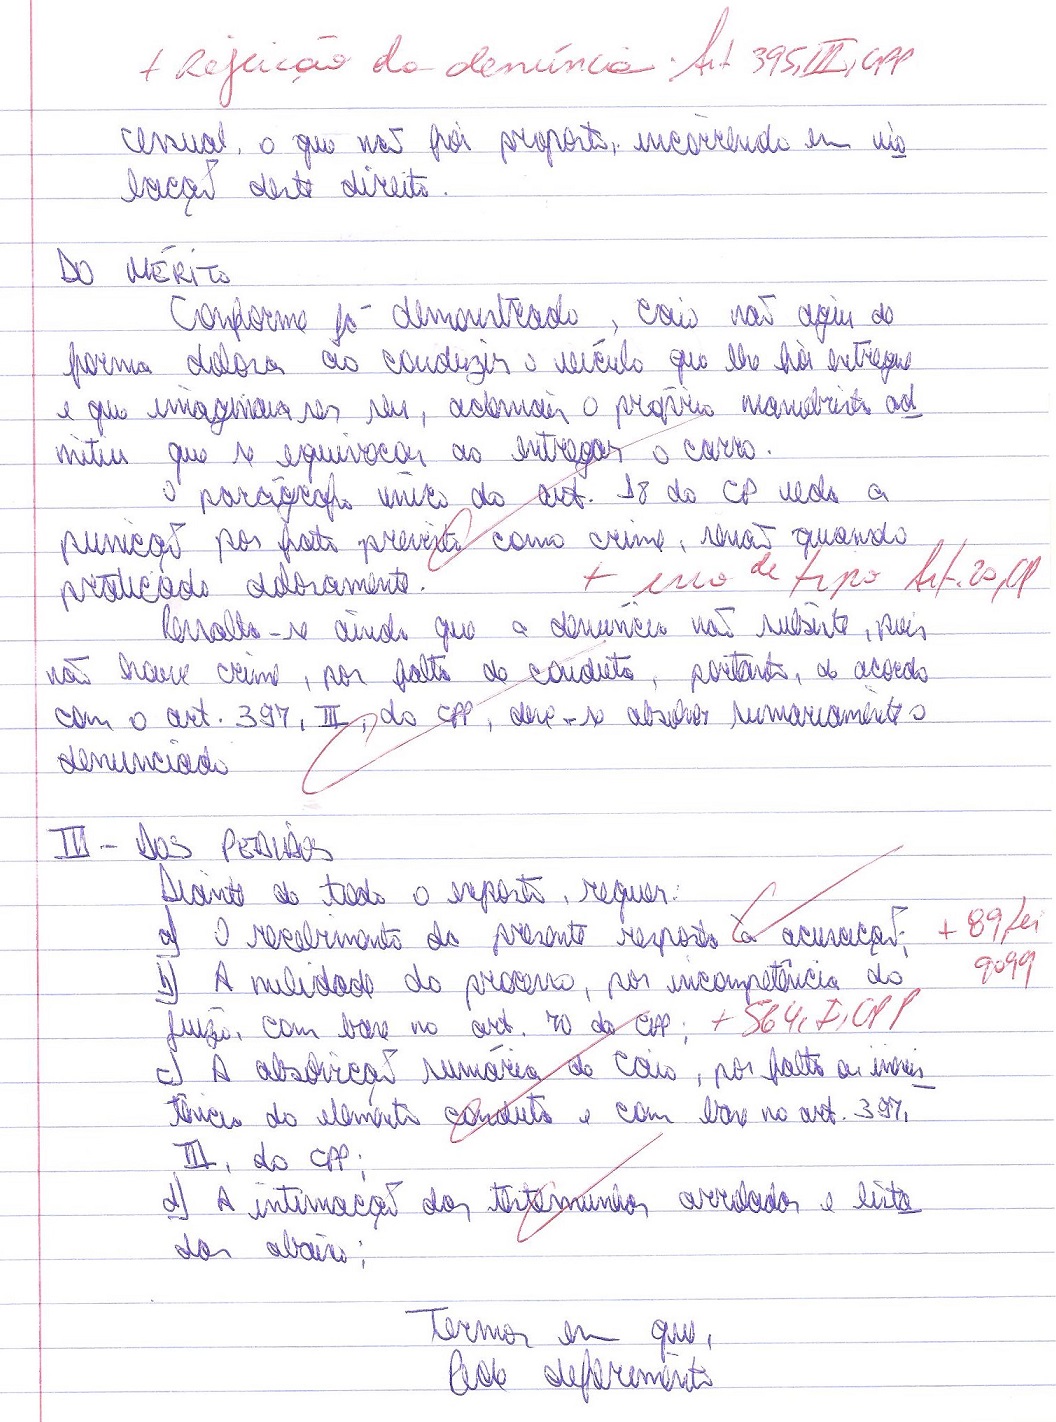 + Rejeição da denúncia. Art 395, III, CPP
cessual, o que não foi proposto, incorrendo em vio
lação deste direito.
DO MÉRITO
Conforme já demonstrado, Caio não agiu de
forma dolosa ao conduzir o veículo que lhe foi entregue
e que imaginava ser seu, ademais o próprio manobrista ad
mitiu que se equivocou ao entregar o carro.
O parágrafo único do art. 18 do CP veda a
punição por fato previsto como crime, senão quando
praticado dolosamente.
+ erro de tipo Art. 20, CP
Ressalta-se ainda que a denúncia não subsiste, pois
não houve crime, por falta de conduta, portanto, de acordo
com o art. 397, III, do CPP, deve-se absolver sumariamente o
denunciado
III - DOS PEDIDOS
Diante de todo o exposto, requer:
a) O recebimento da presente resposta à acusação;
+ 89 Lei
9099
b) A nulidade do processo, por incompetência do
juízo, com base no art. 70 do CPP; + 564, I, CPP
c) A absolvição sumária de Caio, por falta ou inexis
tência do elemento conduta e com base no art. 397,
III, do CPP;
d) A intimação das testemunhas arroladas e lista
das abaixo;
Termos em que,
Pede deferimento